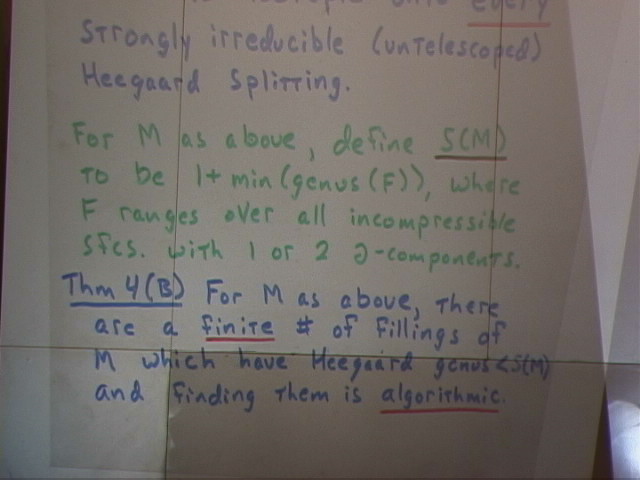 every
strongly irreducible (untelescoped)
Heegaard splitting.
For M as above, define S(M)
to be 1+ min(genus(F)), where
F ranges over all incompressible
sfcs. with 1 or 2 ∂-components.
Thm 4(B) For M as above, there
are a finite # of fillings of
M which have Heegaard genus < S(M)
and finding them is algorithmic.